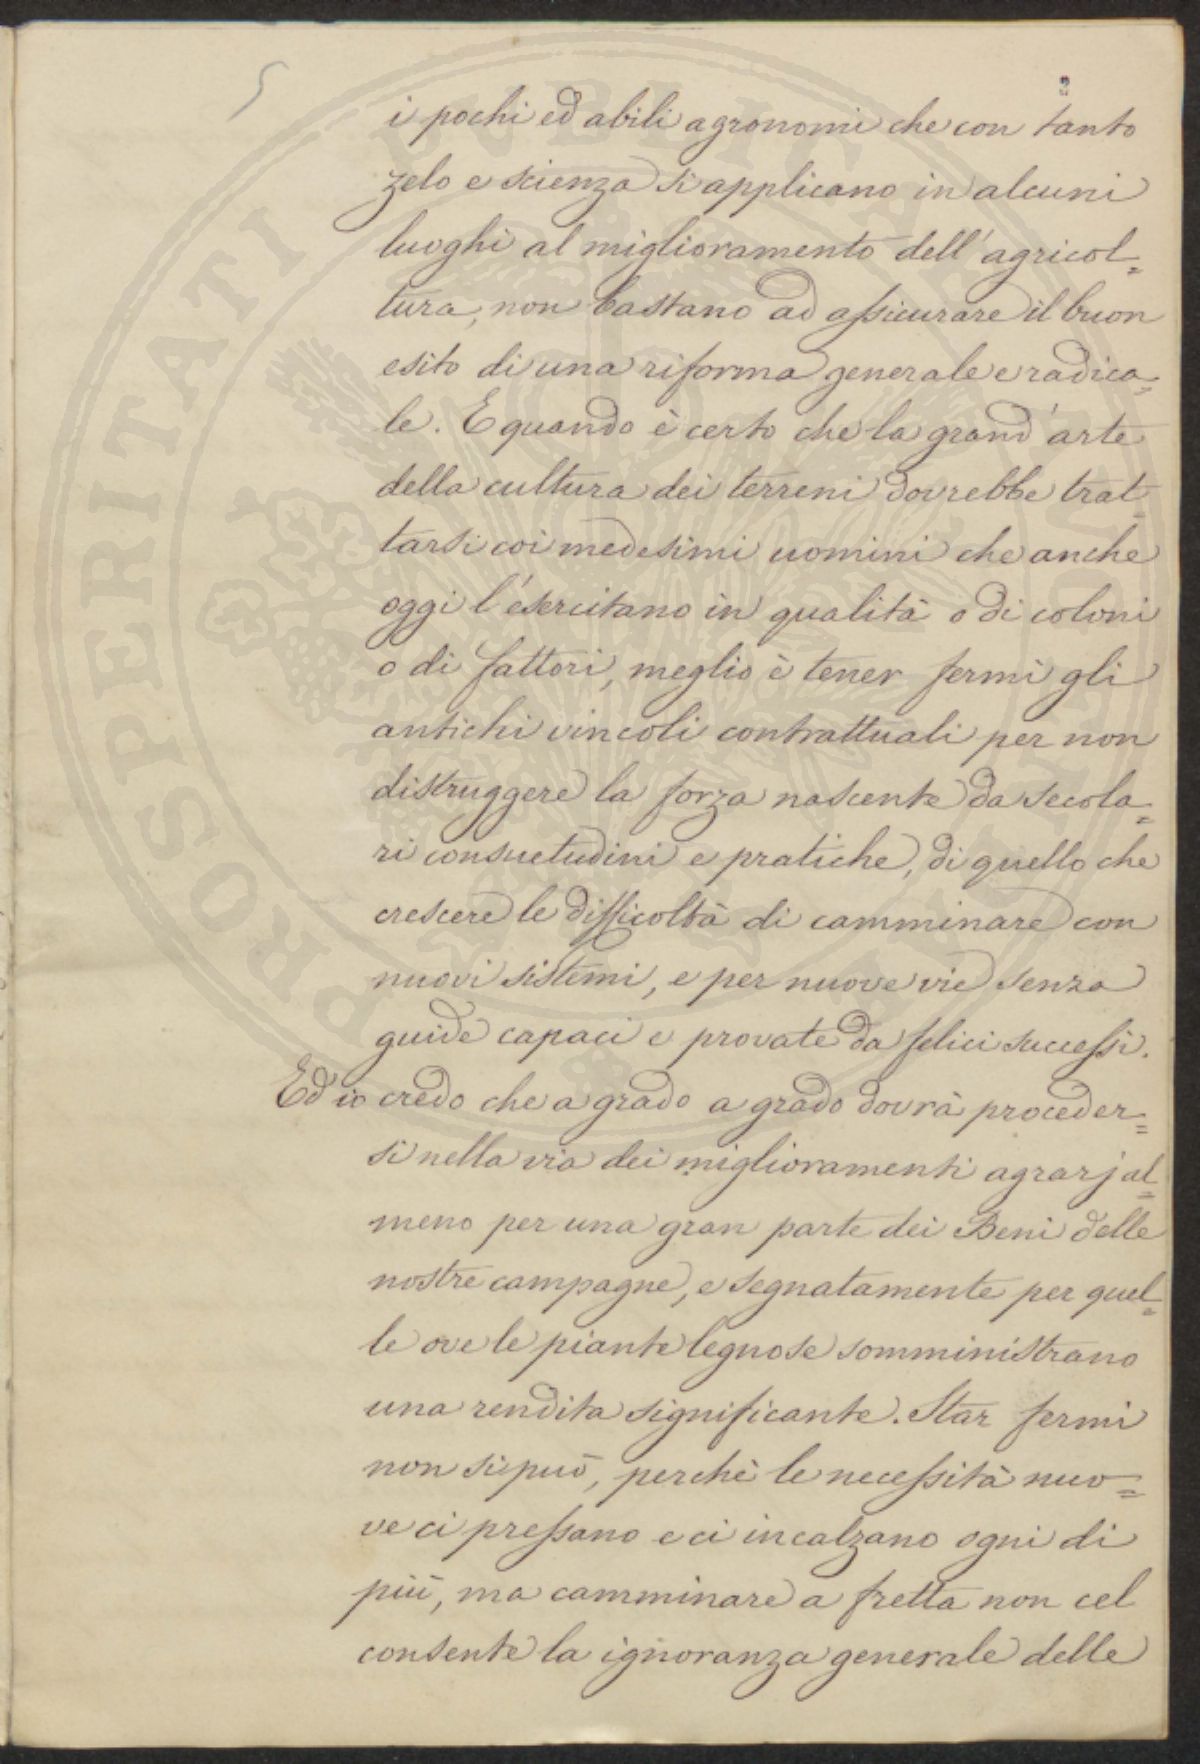 5
3
i pochi ed abili agronomi che con tanto
zelo e scienza si applicano in alcuni
luoghi al miglioramento dell'agricol=
tura, non bastano ad assicurare il buon
esito di una riforma generale e radica=
le. E quando è certo che la grand'arte
della cultura dei terreni dovrebbe trat=
tarsi coi medesimi uomini che anche
oggi l'esercitano in qualità o di coloni
o di fattori, meglio è tener fermi gli
antichi vincoli contrattuali per non
distruggere la forza nascente da secola=
ri consuetudini e pratiche, di quello che
crescere le difficoltà di camminare con
nuovi sistemi, e per nuove vie senza
guide capaci e provate da felici successi.
Ed io credo che a grado a grado dovrà proceder=
si nella via dei miglioramenti agrarj al=
meno per una gran parte dei Beni delle
nostre campagne, e segnatamente per quel=
le ove le piante legnose somministrano
una rendita significante. Star fermi
non si può, perchè le necessità nuo=
ve ci pressano e ci incalzano ogni di
più, ma camminare a fretta non cel
consente la ignoranza generale delle
PROSPERITATI PUBLICAE